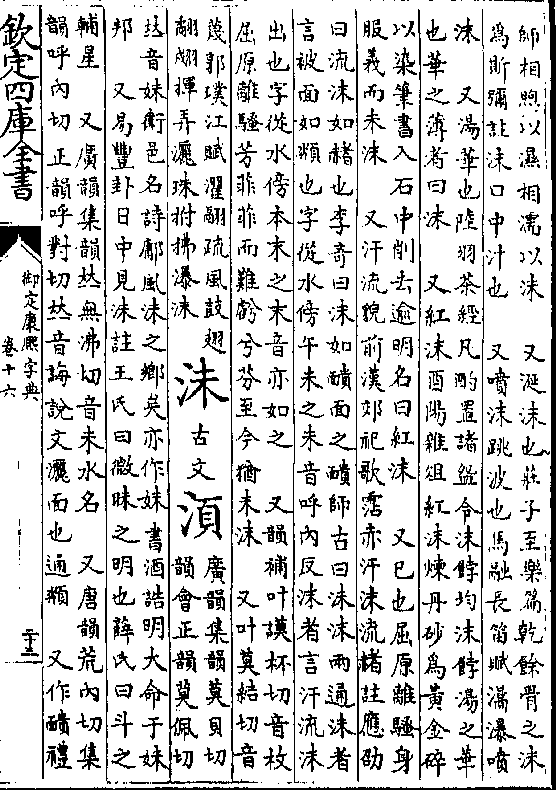 師相煦以濕相濡以沫　又涎沫也莊子至樂篇乾餘骨之沫
為斯彌註沫口中汁也　又噴沫跳波也馬融長笛賦瀑噴
沫　又湯華也陸羽茶經凡酌置諸盌令沫餑均沫餑湯之華
也華之薄者曰沫　又紅沫酉陽雜俎紅沫煉丹砂為黃金碎
以染筆書入石中削去逾明名曰紅沫　又已也屈原離騷身
服義而未沫　又汗流貌前漢郊祀歌霑赤汗沫流赭註應劭
曰流沫如赭也李奇曰沫如靧面之靧師古曰沫沬兩通沬者
言被面如頮也字從水傍午未之未音呼內反沫者言汗流沫
出也字從水傍本末之末音亦如之　又韻補叶謨杯切音枚
屈原離騷芳菲菲而難虧兮芬至今猶未沫　又叶莫結切音
蔑郭璞江賦濯翮疏風鼓翅
翽揮弄灑珠拊拂瀑沫
沬　古文　湏
廣韻集韻莫貝切
韻會正韻莫佩切
𠀤音妹衛邑名詩鄘風沬之鄉矣亦作妹書酒誥明大命于妹
邦　又易豐卦日中見沬註王氏曰微昧之明也薛氏曰斗之
輔星　又廣韻集韻𠀤無沸切音未水名　又唐韻荒內切集
韻呼內切正韻呼對切𠀤音誨說文灑面也通頮　又作靧禮
欽定四庫全書
御定康熙字典
卷十六
二十三